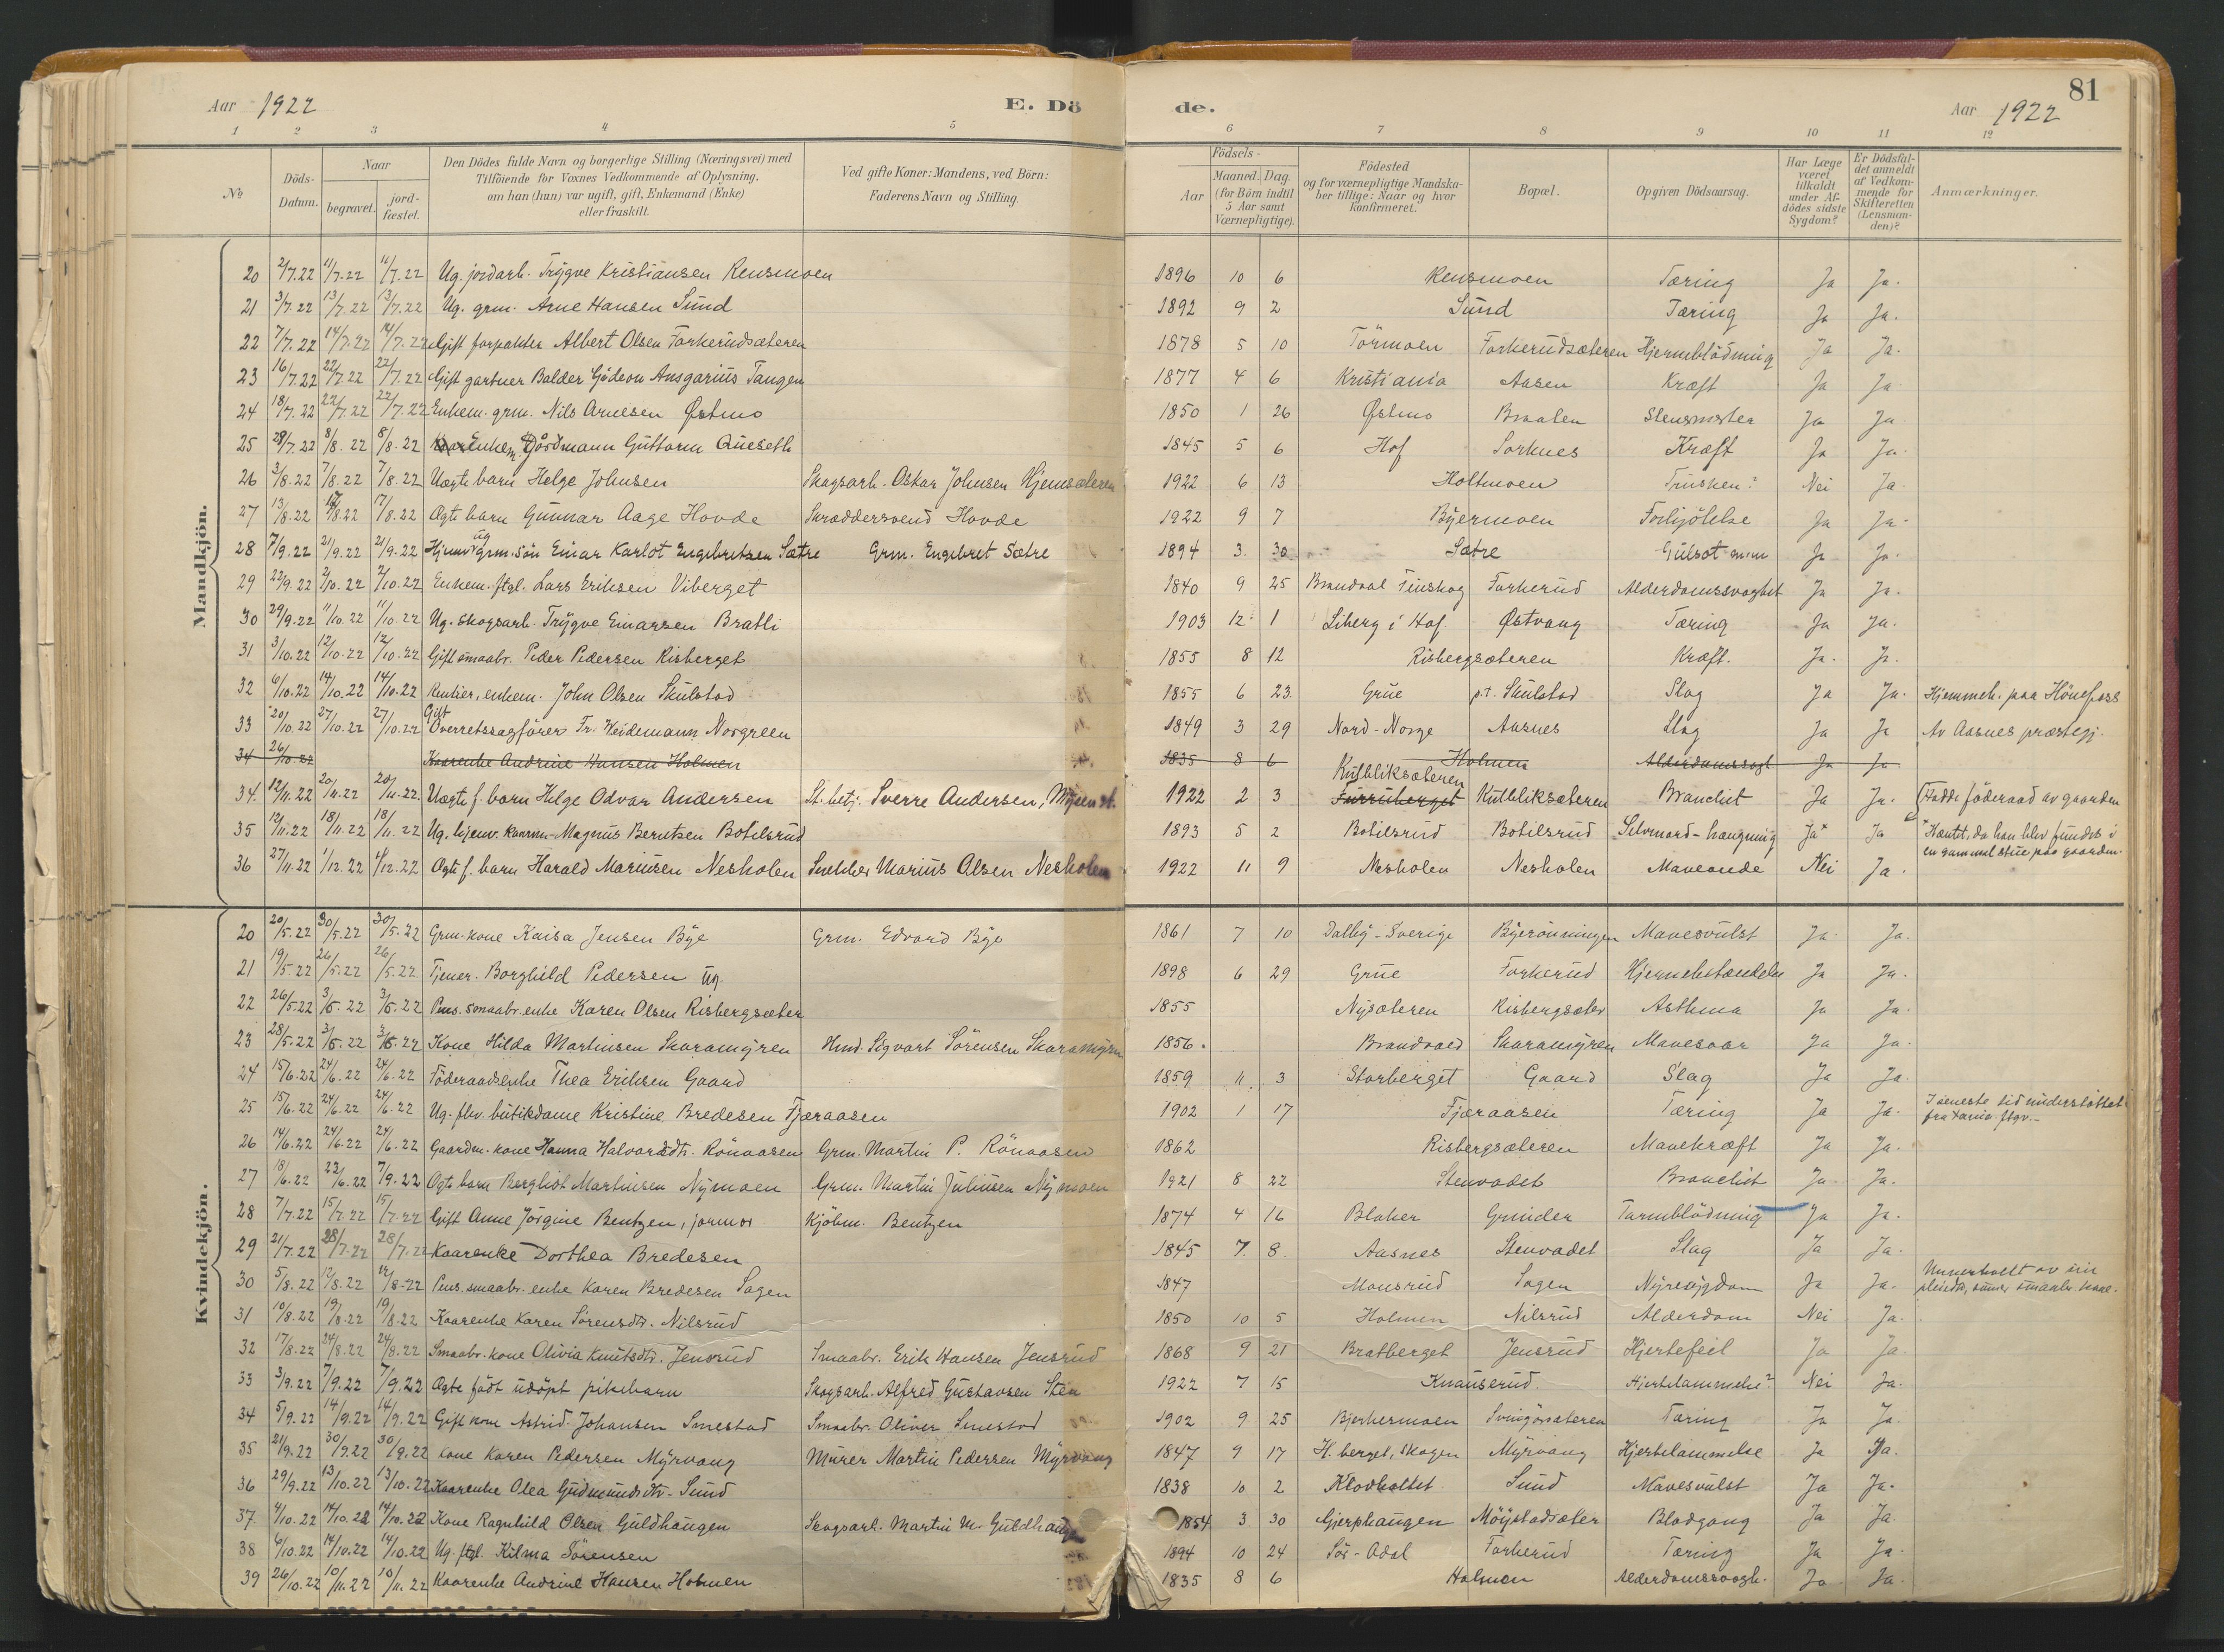 81
Aar 1922 E. Dö de. Aar 1922
1 2 3 4 5 6 7 8 9 10 11 12
No
Döds-Datum.
Naar
begravet. jord-fæstet.
Den Dödes fulde Navn og borgerlige Stilling (Næringsvei) med
Tilföiende for Voxnes Vedkommende af Oplysning,
om han (hun) var ugift, gift, Enkemand (Enke)
eller fraskilt.
Ved gifte Koner: Mandens, ved Börn:
Faderens Navn og Stilling.
Födsels-
Aar
Maaned. Dag.
(for Börn indtil
5 Aar samt
Værnepligtige).
Födested
og for værnepligtige Mandska-
ber tillige: Naar og hvor
konfirmeret.
Bopæl.
Opgiven Dödsaarsag.
Har Læge
været
tilkaldt
under Af-
dödes sidste
Sygdom?
Er Dödsfal-
det anmeldt
af Vedkom-
mende for
Skifteretten
(Lensman-
den)?
Anmærkninger.
Mandkjön.
20 2/7.22 11/7.22 11/7.22 Ug. jordarb. Trygve Kristiansen Rensmoen 1896 10 6 Rensmoen Tæring Ja Ja.
21 3/7.22 13/7.22 13/7.22 Ug. grm. Arne Hansen Sund 1892 9 2 Sund Tæring Ja Ja.
22 7/7.22 14/7.22 14/7.22 Gift forpakter Albert Olsen Torkerudsæteren 1878 5 10 Törmoen Torkerudsæteren Hjerneblödning Ja Ja.
23 16/7.22 22/7.22 22/7.22 Gift gartner Balder Gideon Ansgarius Tangen 1877 4 6 Kristiania Aasen Kræft Ja Ja
24 18/7.22 22/7.22 22/7.22 Enkem. grm. Nils Arnesen Østmo 1850 1 26 Østmo Braaten Stensmerter Ja Ja
25 28/7.22 8/8.22 8/8.22 Enkem. Gårdmann Guttorm Queseth 1845 5 6 Hof Sorknes Kræft Ja Ja.
26 3/8.22 7/8.22 7/8.22 Uægte barn Helge Johnsen Skogsarb. Oskar Johnsen Hjemsæteren 1922 6 13 Holtmoen Trusken? Nei Ja.
27 13/8.22 17/8.22 17/8.22 Ægte barn Gunnar Aage Hovde Skræddersvend Hovde 1922 9 7 Byermoen Forkjölelse Ja Ja.
28 7/9.22 21/9.22 21/9.22 Hjemv. ug grm.sön Einar Karlot Engebretsen Sætre Grm. Engebret Sætre 1894 3 30 Sætre Gulsot m.m Ja Ja.
29 22/9.22 2/10.22 2/10.22 Enkem. ftgl. Lars Eriksen Viberget 1840 9 25 Brandval Finskog Torkerud Alderdomssvaghet Ja Ja.
30 29/9.22 11/10.22 11/10.22 Ug. skogsarb. Trygve Einarsen Bratli 1903 12 1 Liberg i Hof Østvang Tæring Ja Ja.
31 3/10.22 12/10.22 12/10.22 Gift smaabr. Peder Pedersen Risberget 1855 8 12 Risbergsæteren Kræft. Ja. Ja.
32 6/10.22 14/10.22 14/10.22 Rentier, enkem. John Olsen Skulstad 1855 6 23. Grue p.t. Skulstad Slag Ja Ja. Hjemmeh. paa Hönefoss
33 20/10.22 27/10.22 27/10.22 Gift Overretssagförer Fr. Heidemann Norgreen 1849 3 29 Nord-Norge Aasnes Slag Ja Ja Av Aasnes præstegj.
34 26/10.22 Kaarenke Andrine Hansen Holmen 1835 8 6 Holmen Alderdomssvagh Ja Ja
34. 12/11.22 20/11.22 20/11.22. Uægte f. barn Helge Odvar Andersen St. betj. Sverre Andersen, Myren st. 1922 2 3 Furruberget Kulbliksæteren Kulbliksæteren Bronchit Ja Ja. Hadde föderaad av gaarden
35 12/11.22 18/11.22 18/11.22 Ug. hjemv. kaarm. Magnus Berntsen Botilsrud 1893 5 2 Botilsrud Botilsrud Selvmord-hængning Ja* Ja *Hæntet, da han blev fundet i
en gammel stue paa gaarden.
36 27/11.22 1/12.22 4/12.22 Ægte f. barn Harald Mariusen Nesholen Snekker Marius Olsen Nesholen 1922 11 9 Nesholen Nesholen Maveonde Nei Ja.
Kvindekjön.
20 20/5.22 30/5.22 30/5.22 Grm.kone Kaisa Jensen Bye Grm. Edvard Bye 1861 7 10 Dalby-Sverige Byerönningen Mavesvulst Ja Ja.
21 19/5.22 26/5.22 26/5.22 Tjener. Borghild Pedersen ug. 1898 6 29 Grue Torkerud Hjernebetændelse Ja Ja.
22 26/5.22 3/6.22 3/6.22 Pens. smaabr.enke Karen Olsen Risbergsæter 1855 Nysæteren Risbergsæter Asthma Ja Ja.
23 28/5.22 3/6.22 3/6.22 Kone Hilda Martinsen Skaramyren Hmd. Sigvart Sörensen Skaramyren 1856. Brandvold Skaramyren Mavesaar Ja Ja.
24 15/6.22 24/6.22 24/6.22 Föderaadsenke Thea Eriksen Gaard 1859 11. 3 Storberget Gaard Slag Ja Ja.
25 15/6.22 24/6.22 24/6.22 Ug. fhv. butikdame Kristine Bredesen Fjæraasen 1902 1 17 Fjæraasen Tæring Ja Ja. I seneste tid understöttet
fra
26 14/6.22 24/6.22 24/6.22 Gaardm. kone Hanna Halvorsdtr. Rönaasen Grm. Martin P. Rönaasen 1862 Risbergsæteren Mavekræft Ja Ja.
27 18/6.22 22/6.22 7/9.22 Ægte barn Bergliot Martinsen Nymoen Grm. Martin Juliusen Nymoen 1921 8 22 Stenvadet Bronchit Ja Ja.
28 7/7.22 15/7.22 15/7.22 Gift Anne Jörgine Bentzen, jormor Kjöbm. Bentzen 1874 4 16 Blaker Grinder Tarmblödning Ja Ja.
29 21/7.22 28/7.22 28/7.22 Kaarenke Dorthea Bredesen 1845 7. 8. Aasnes Stenvadet Slag Ja Ja.
30 5/8.22 12/8.22 12/8.22 Pens. smaabr. enke Karen Bredesen Sagen 1847 Monsrud Sagen Nyresygdom Ja Ja. Underholdt av sin
pleiedtr,
31 10/8.22 19/8.22 19/8.22 Kaarenke Karen Sörensdtr. Nilsrud 1850 10 5 Holmen Nilsrud Alderdom Nei Ja.
32 17/8.22 24/8.22 24/8.22 Smaabr. kone Olivia Knutsdtr. Jensrud Smaabr. Erik Hansen Jensrud 1868 9 21 Bratberget Jensrud Hjertefeil Ja Ja.
33 3/9.22 7/9.22 7/9.22 Ægte födt udöpt pikebarn Skogsarb. Alfred Gustavsen Sten 1922 7 15 Knauserud Hjertelammelse? Nei Ja.
34 5/9.22 14/9.22 14/9.22 Gift kone Astrid Johansen Smestad Smaabr. Oliver Smestad 1902 9 25 Bjerkermoen Svingörsæteren Tæring Ja Ja.
35 21/9.22 30/9.22 30/9.22 Kone Karen Pedersen Myrvang Murer Martin Pedersen Myrvang 1847 9 17 H. berget, Skogen Myrvang Hjertelammelse Ja Ja.
36 29/9.22 13/10.22 13/10.22 Kaarenke Olea Gudmundsdtr. Sund 1838 10 2 Klovholtet Sund Mavesvulst Ja Ja.
37. 4/10.22 14/10.22 14/10.22 Kone Ragnhild Olsen Guldhaugen Skogsarb. Martin M. Guldhaugen 1854 3 30 Gjerphaugen Möystadsæter Blodgang Ja Ja.
38 6/10.22 14/10.22 14/10.22 Ug. ftgl. Kilma Sörensen 1894 10 24 Sör-Odal Torkerud Tæring Ja Ja.
39 26/10.22 10/11.22 10/11.22 Kaarenke Andrine Hansen Holmen 1835 8 6 Holmen Alderdomssvagh. Ja Ja.